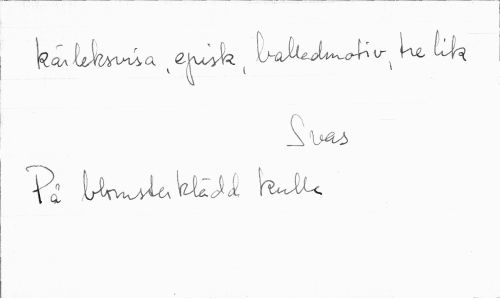 kärleksvisa, episk, balladmotiv, tre lik
Svas
På blomsterklädd kulle